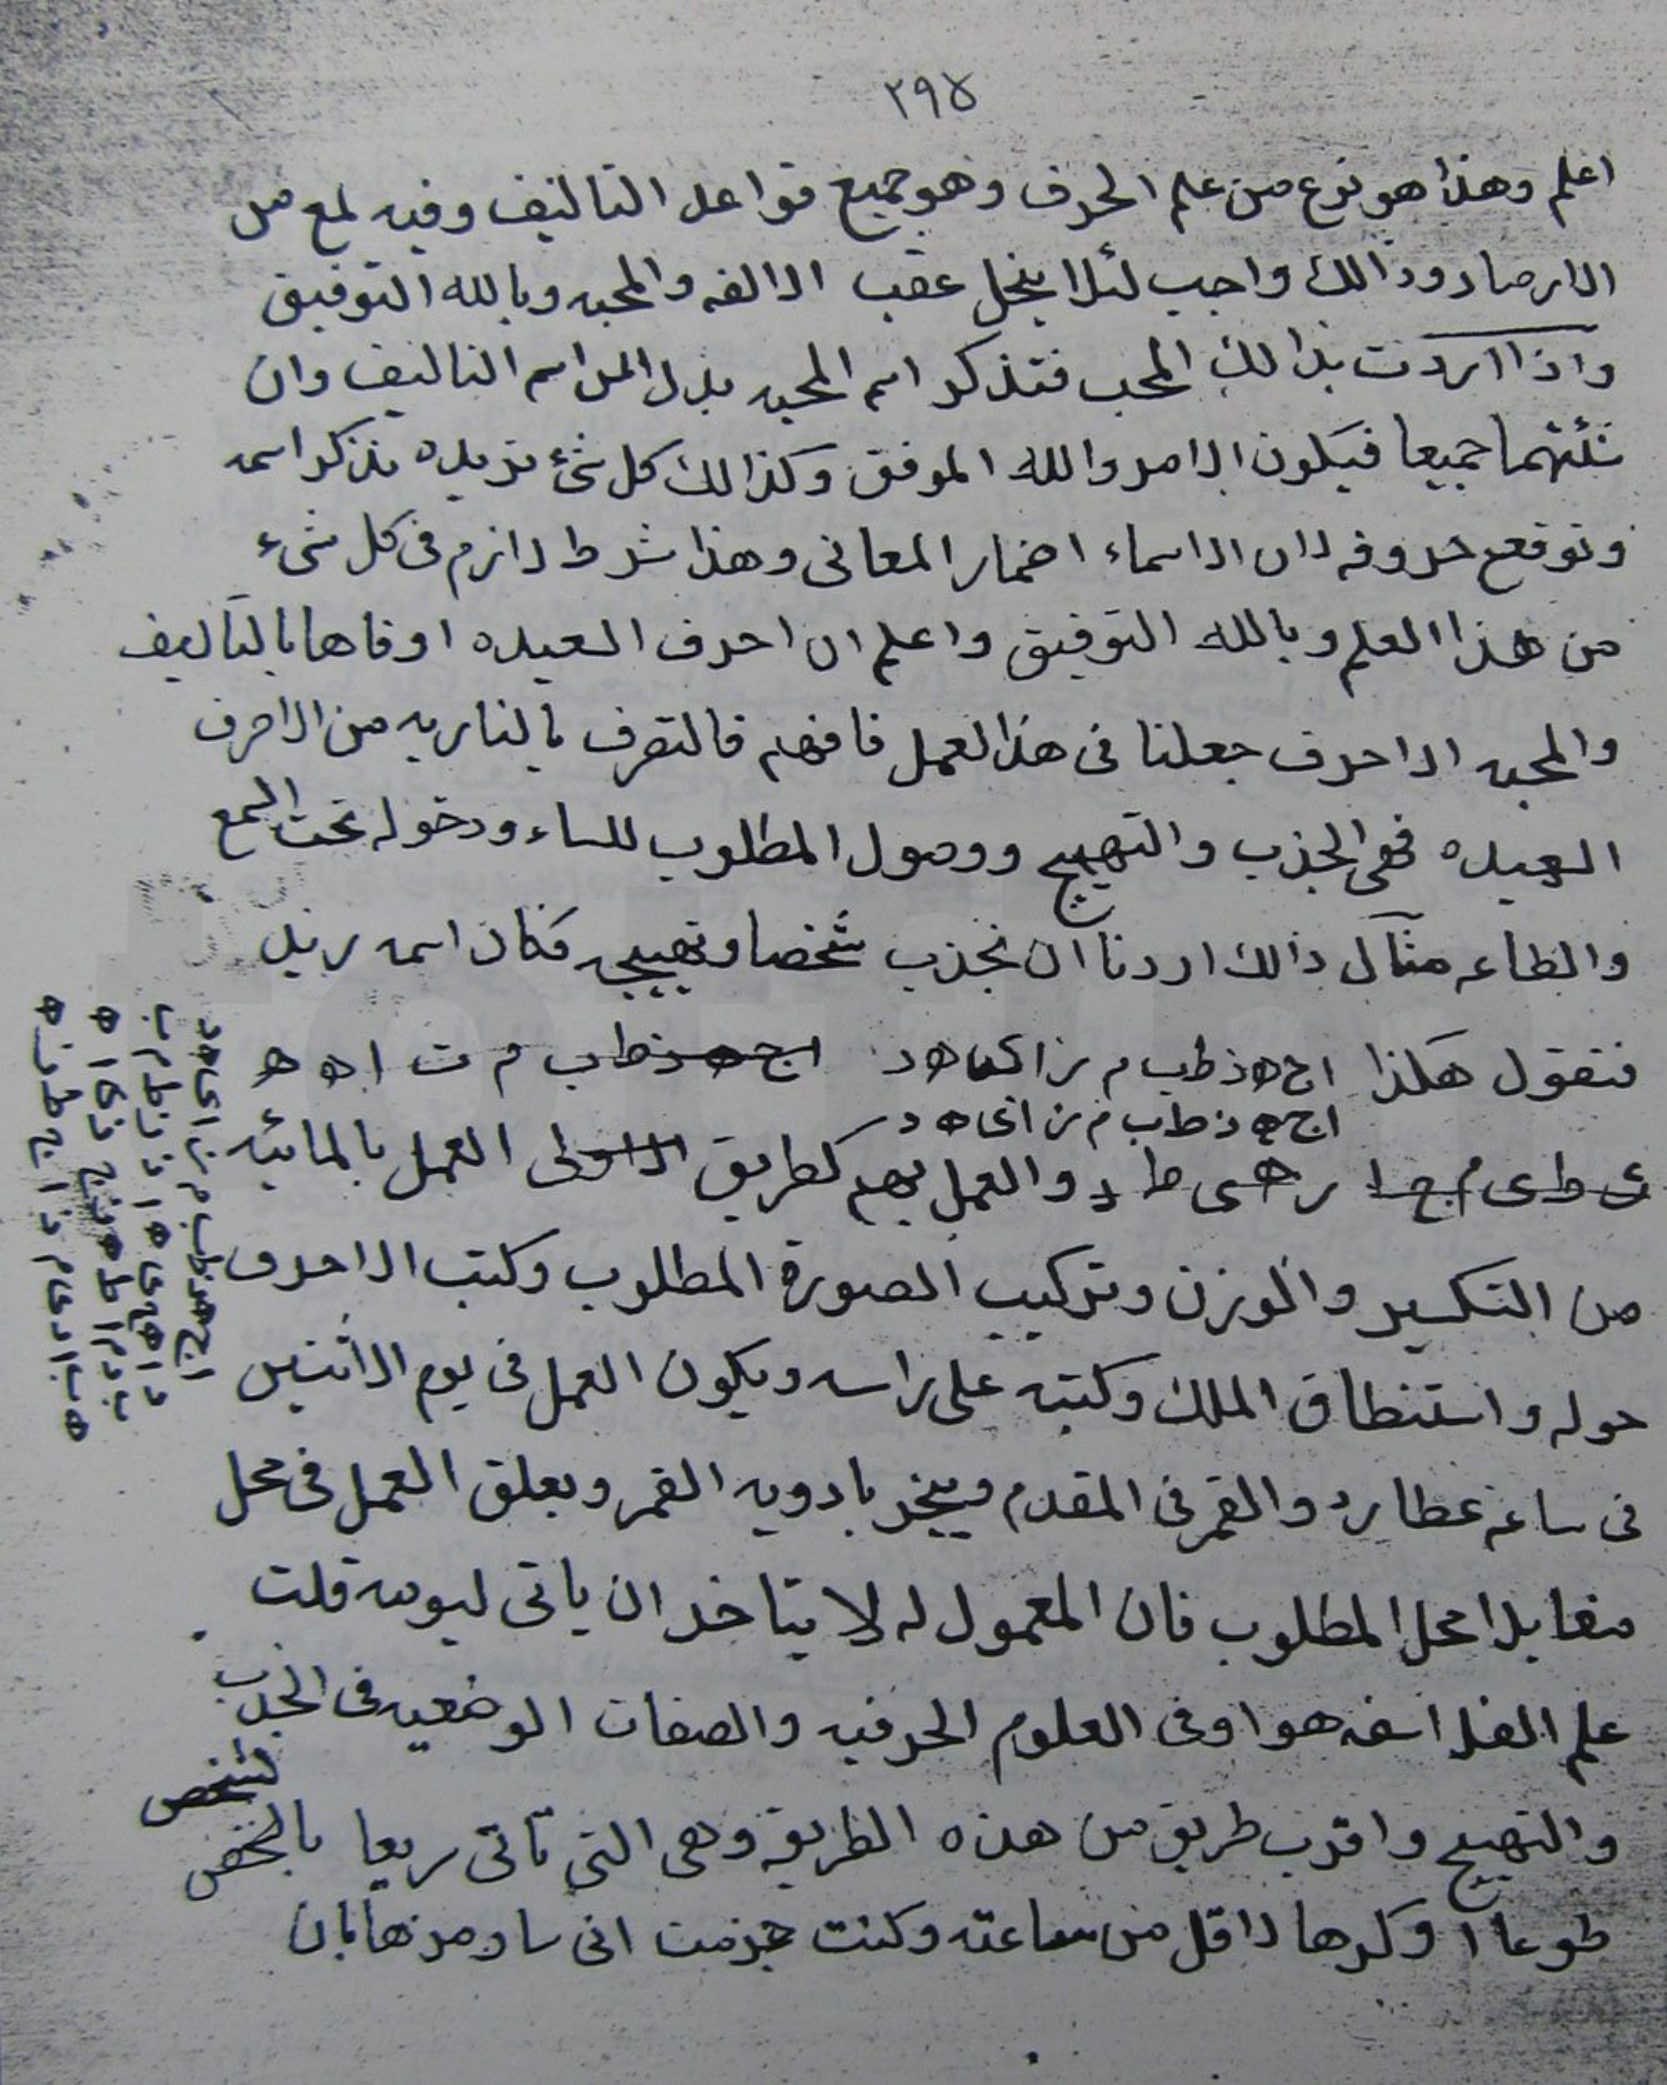 ٢٩٨
اعلم وهذا هو نوع من علم الحرف وهو جميع قواعد التاليف وفيه لمع من
الارصاد وذالك واجب لئلا ينحل عقب الالفه والمحبه وبالله التوفيق
واذا اردت بذالك المحب فتذكر اسم المحبه بدلا من اسم التاليف وان
شئتهما جميعا فيكون الامر والله الموفق وكذالك كل شئ تريده تذكر اسمه
وتوقع حروفه لان الاسماء اضمار المعانى وهذا شرط لازم فى كل شىء
من هذا العلم وبالله التوفيق واعلم ان احرف السعيده اوفاها بالتاليف
والمحبه الاحرف جعلنا فى هذا العمل فافهم فالتصرف بالناريه من الاحرف
السعيده فهى الجذب والتهييج ووصول المطلوب للساء ودخوله تحت السمع
والطاعه مثال ذالك اردنا ان نجذب شخصا وتهييجه فكان اسمه زيد
فنقول هكذا اج ه ذ ط ب م ز ا ك ه د اج ه ذ ط ب م ت ا ه ه
اج ه ذ ط ب م ز ا ى ه د
ى ط ى م ج ا ر ه ى ط د والعمل بهم كطريق الاولى العمل بالمائيه
من التكسير والوزن وتركيب الصورة المطلوب وكتب الاحرف
حوله واستنطاق الملك وكتبته على راسه ويكون العمل فى يوم الاثنين
فى ساعة عطارد والقمر فى المقدم ويبخر بادويه القمر ويعلق العمل فى محل
مقابلا محل المطلوب فان المعمول له لا يتاخر ان ياتى ليومه قلت
علم الفلاسفه هو اوفى العلوم الحرفيه والصفات الوضعيه فى الجذب
والتهييج واقرب طريق من هذه الطريقه وهى التى تاتى سريعا بالشخص
لشخص
طوعا او كرها لاقل من ساعته وكنت جزمت انى سادمرها بان